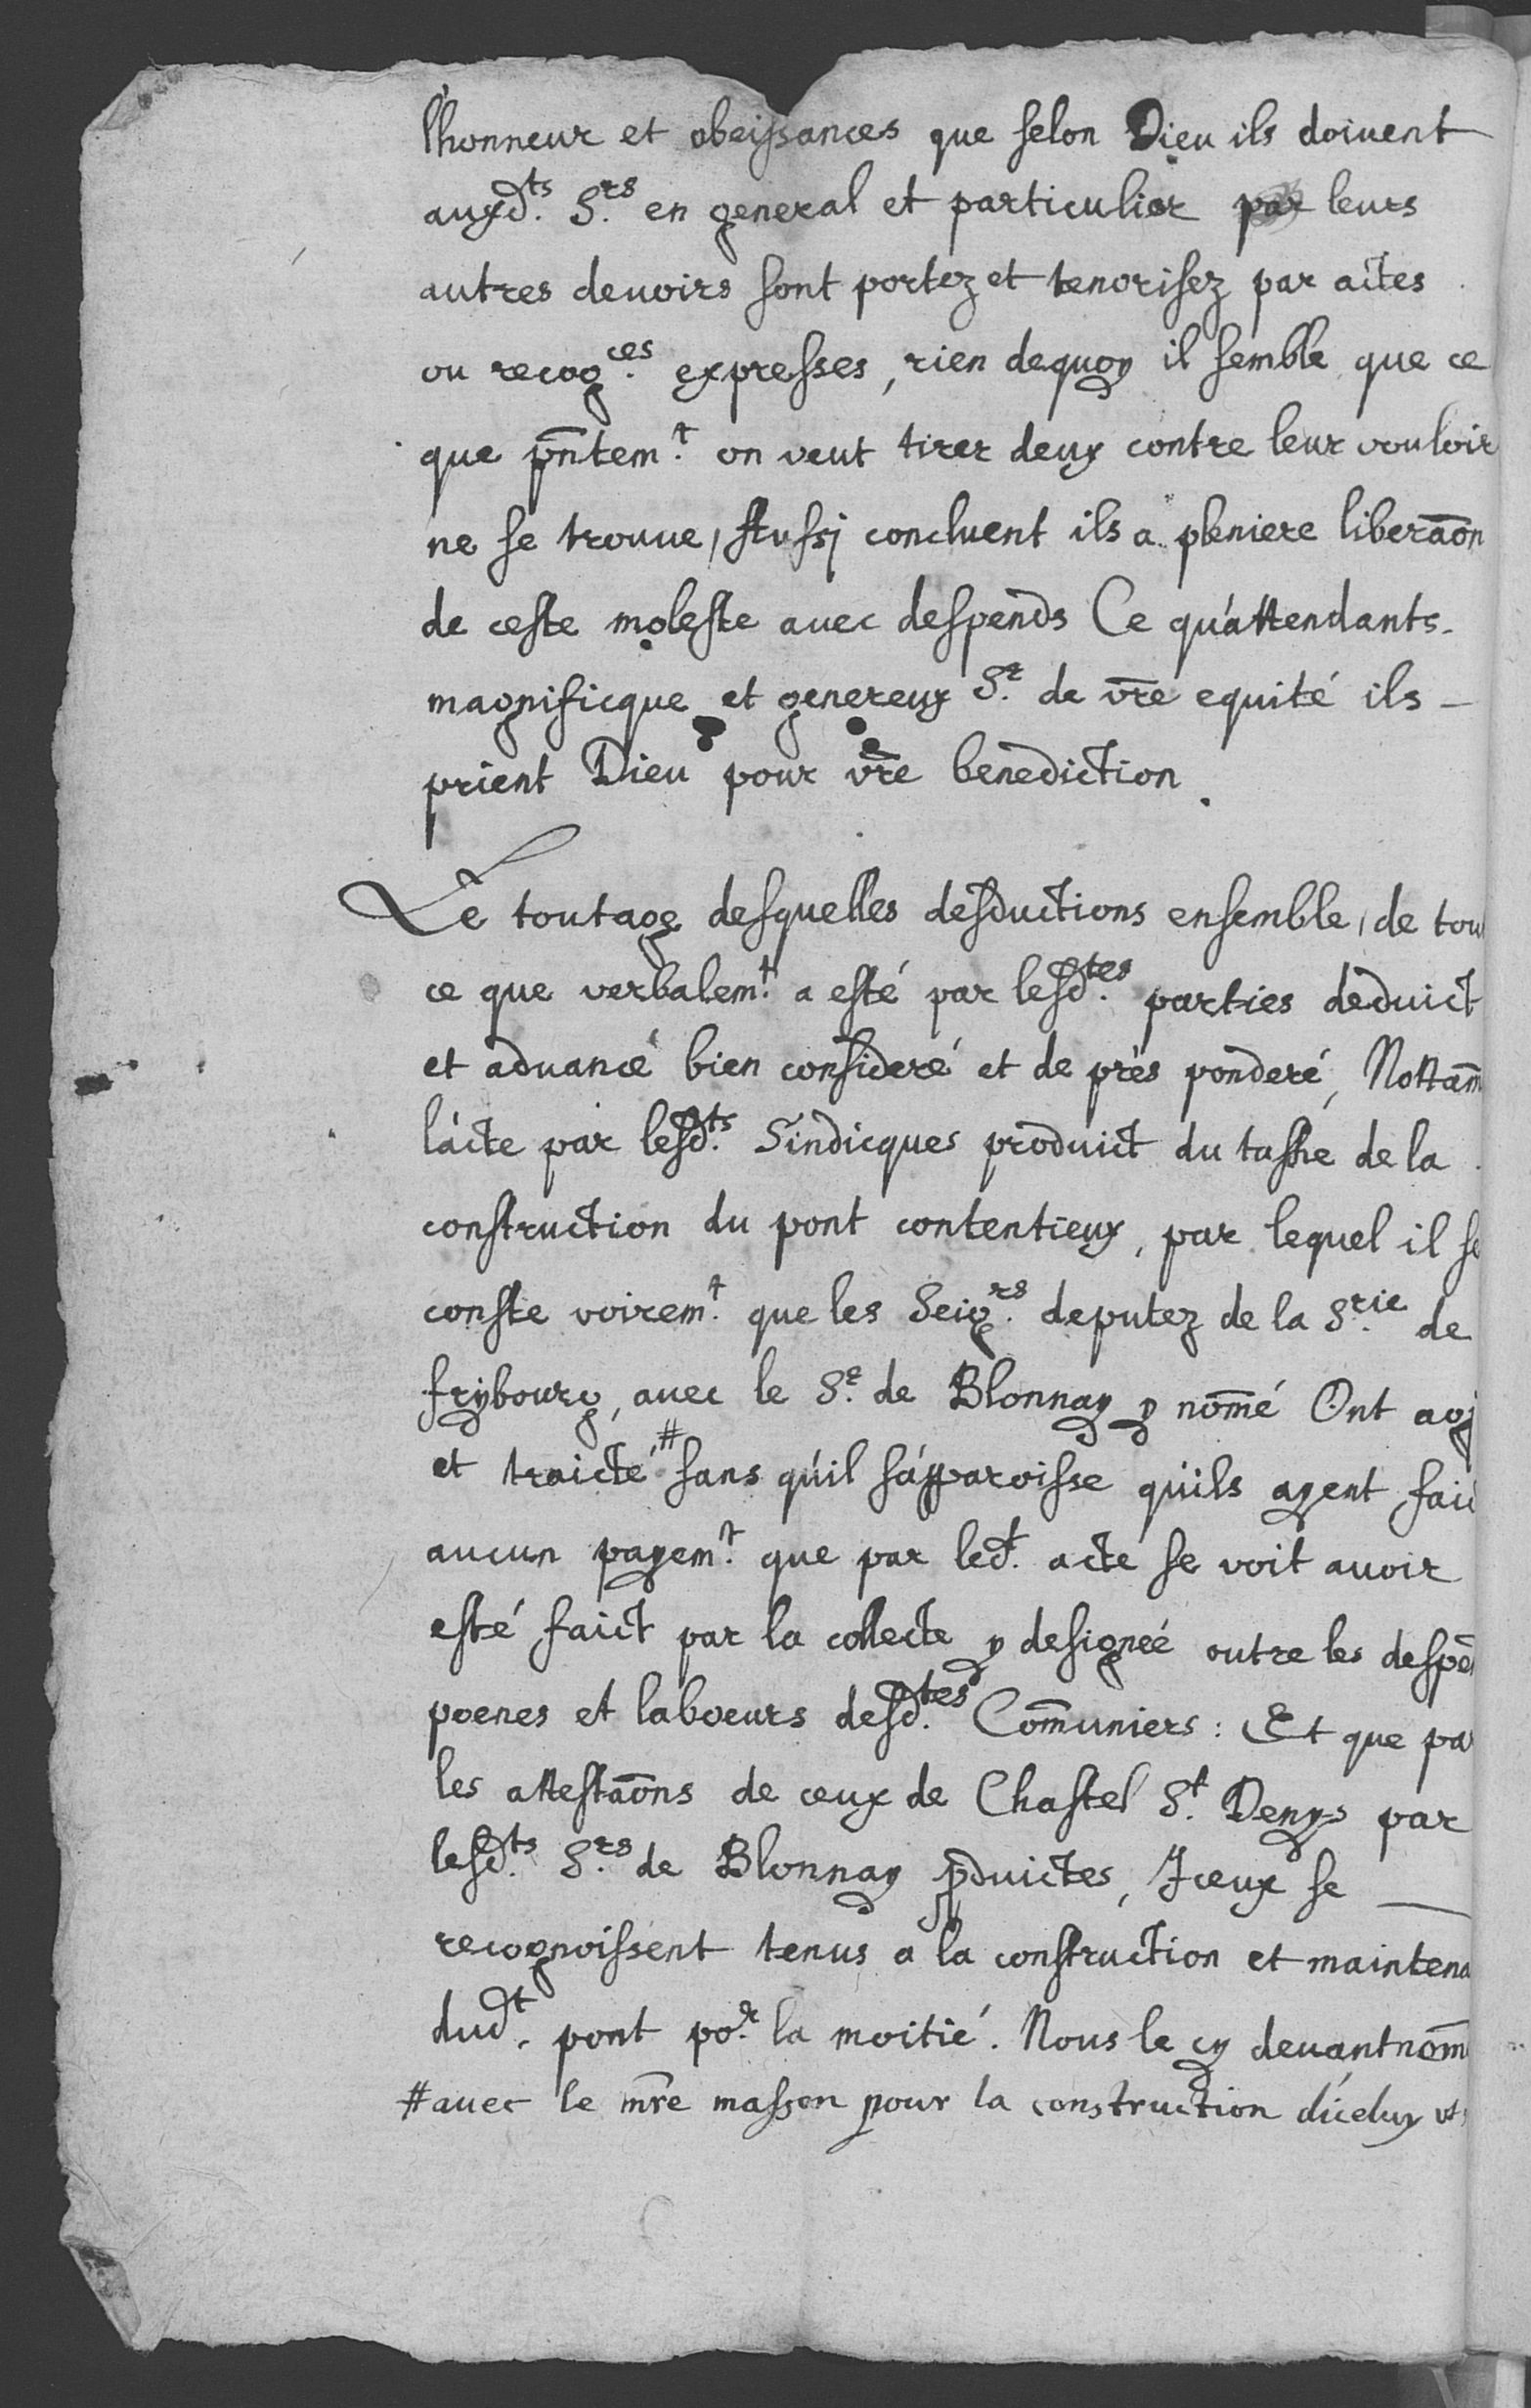 l'honneur et obeissances que selon Dieu ils doivent
auxd.ts S.rs en general et particulier par leurs
autres devoirs sont portez et tenorisez par actes
ou recog.ces expresses, rien dequoy il semble que ce
que pñtem.t on veut tirer deux contre leur vouloir
ne se trouve, Aussj concluent ils a pleniere liberaõn
de ceste moleste avec despends Ce qu'attendants
magnificque et genereux S.r de vr̃e equité ils
prient Dieu pour vr̃e benediction.
Le toutage desquelles desductions ensemble, de tou
ce que verbalem.t a esté par lesd.tes parties deduict
et advancé bien consideré et de près ponderé, Nottam̃
l'acte par lesd.ts Sindicques produict du tashe de la
construction du pont contentieux, par lequel il se
conste voirem.t que les Seig.rs deputez de la S.rie de
frybourg, avec le S.r de Blonnay y nom̃é Ont agj
et traicté,# sans qu'il s'apparoisse qu'ils ayent faic
aucun payem.t que par led.t acte se voit avoir
esté faict par la collecte y designeé outre les despẽ
poenes et laboeurs desd.tes Com̃uniers : Et que pa
les attestaõns de ceux de Chastel S.t Denys par
lesd.ts S.rs de Blonnay p̱duictes, Jceux se
recognoissent tenus a la construction et maintena
dud.t pont po.r la moitié. Nous le cy devant nom̃
# avec le mr̃e masson pour la construction d'iceluy